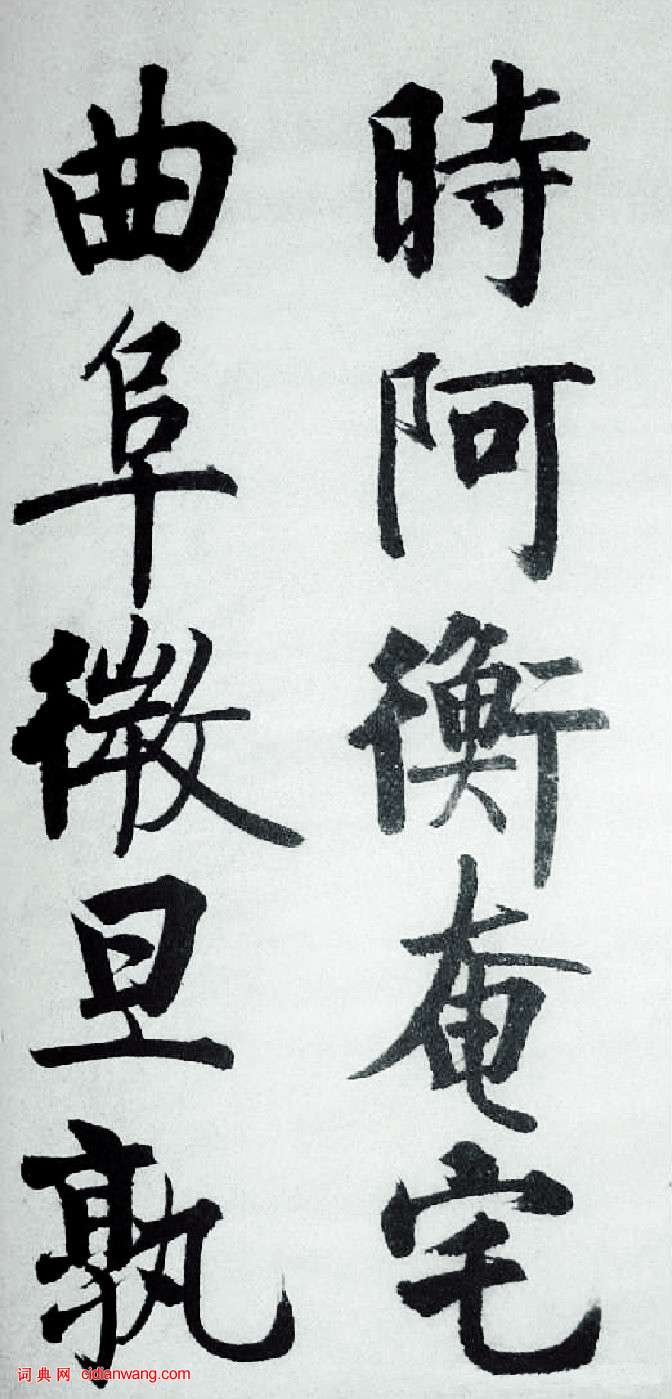 時阿衡奄宅
曲阜微旦孰
词典网 cidianwang.com